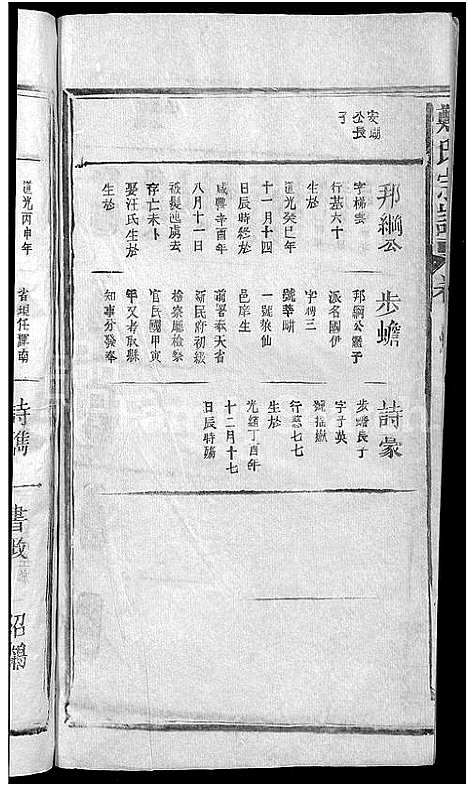 鄭氏宗譜
安瑚
公長
子
邦綱公
字梯雲
行基六十
生於
道光癸巳年
十一月十四
日辰時終於
咸豐辛酉年
八月十一日
被髮逆虜去
存亡未卜
娶汪氏生於
步蟾
邦綱公繼子
派名國伊
字桐三
號華嶠
一號狼仙
邑庠生
前署奉天省
新民府初級
檢察廳檢察
官民國甲寅
年又考取縣
知事分發奉
詩蒙
步蟾長子
字子英
行基七七
生於
光緒丁酉年
十二月十七
日辰時殤
道光丙申年
省現任輝南
詩儁
書政